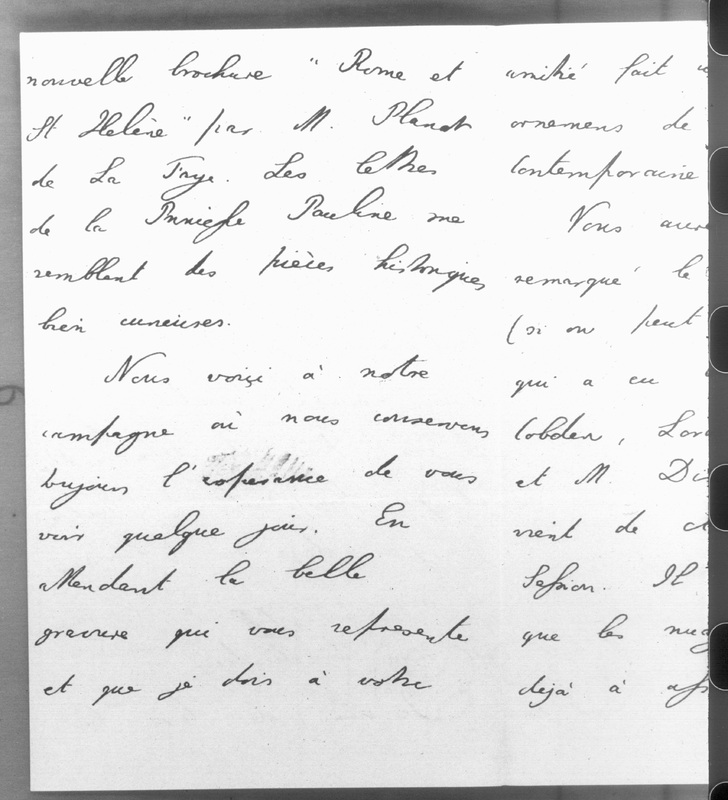 nouvelle brochure " Rome et
St Helène " par M. Planat
de La Faye. Les lettres
de la Princesse Pauline me
semblent des pièces historiques
bien curieuses.
Nous voiçi à notre
campagne où nous conservons
toujours l'esperance de vous
voir quelque jour. En
attendant la belle
gravure qui vous represente
et que je dois à votre
amitié fait
ornemens de
Contemporaine
Vous
remarqué le
(si on peut
qui a eu
Cobden, Lord
et M.
vient de
Session. Il
que les
dejà à